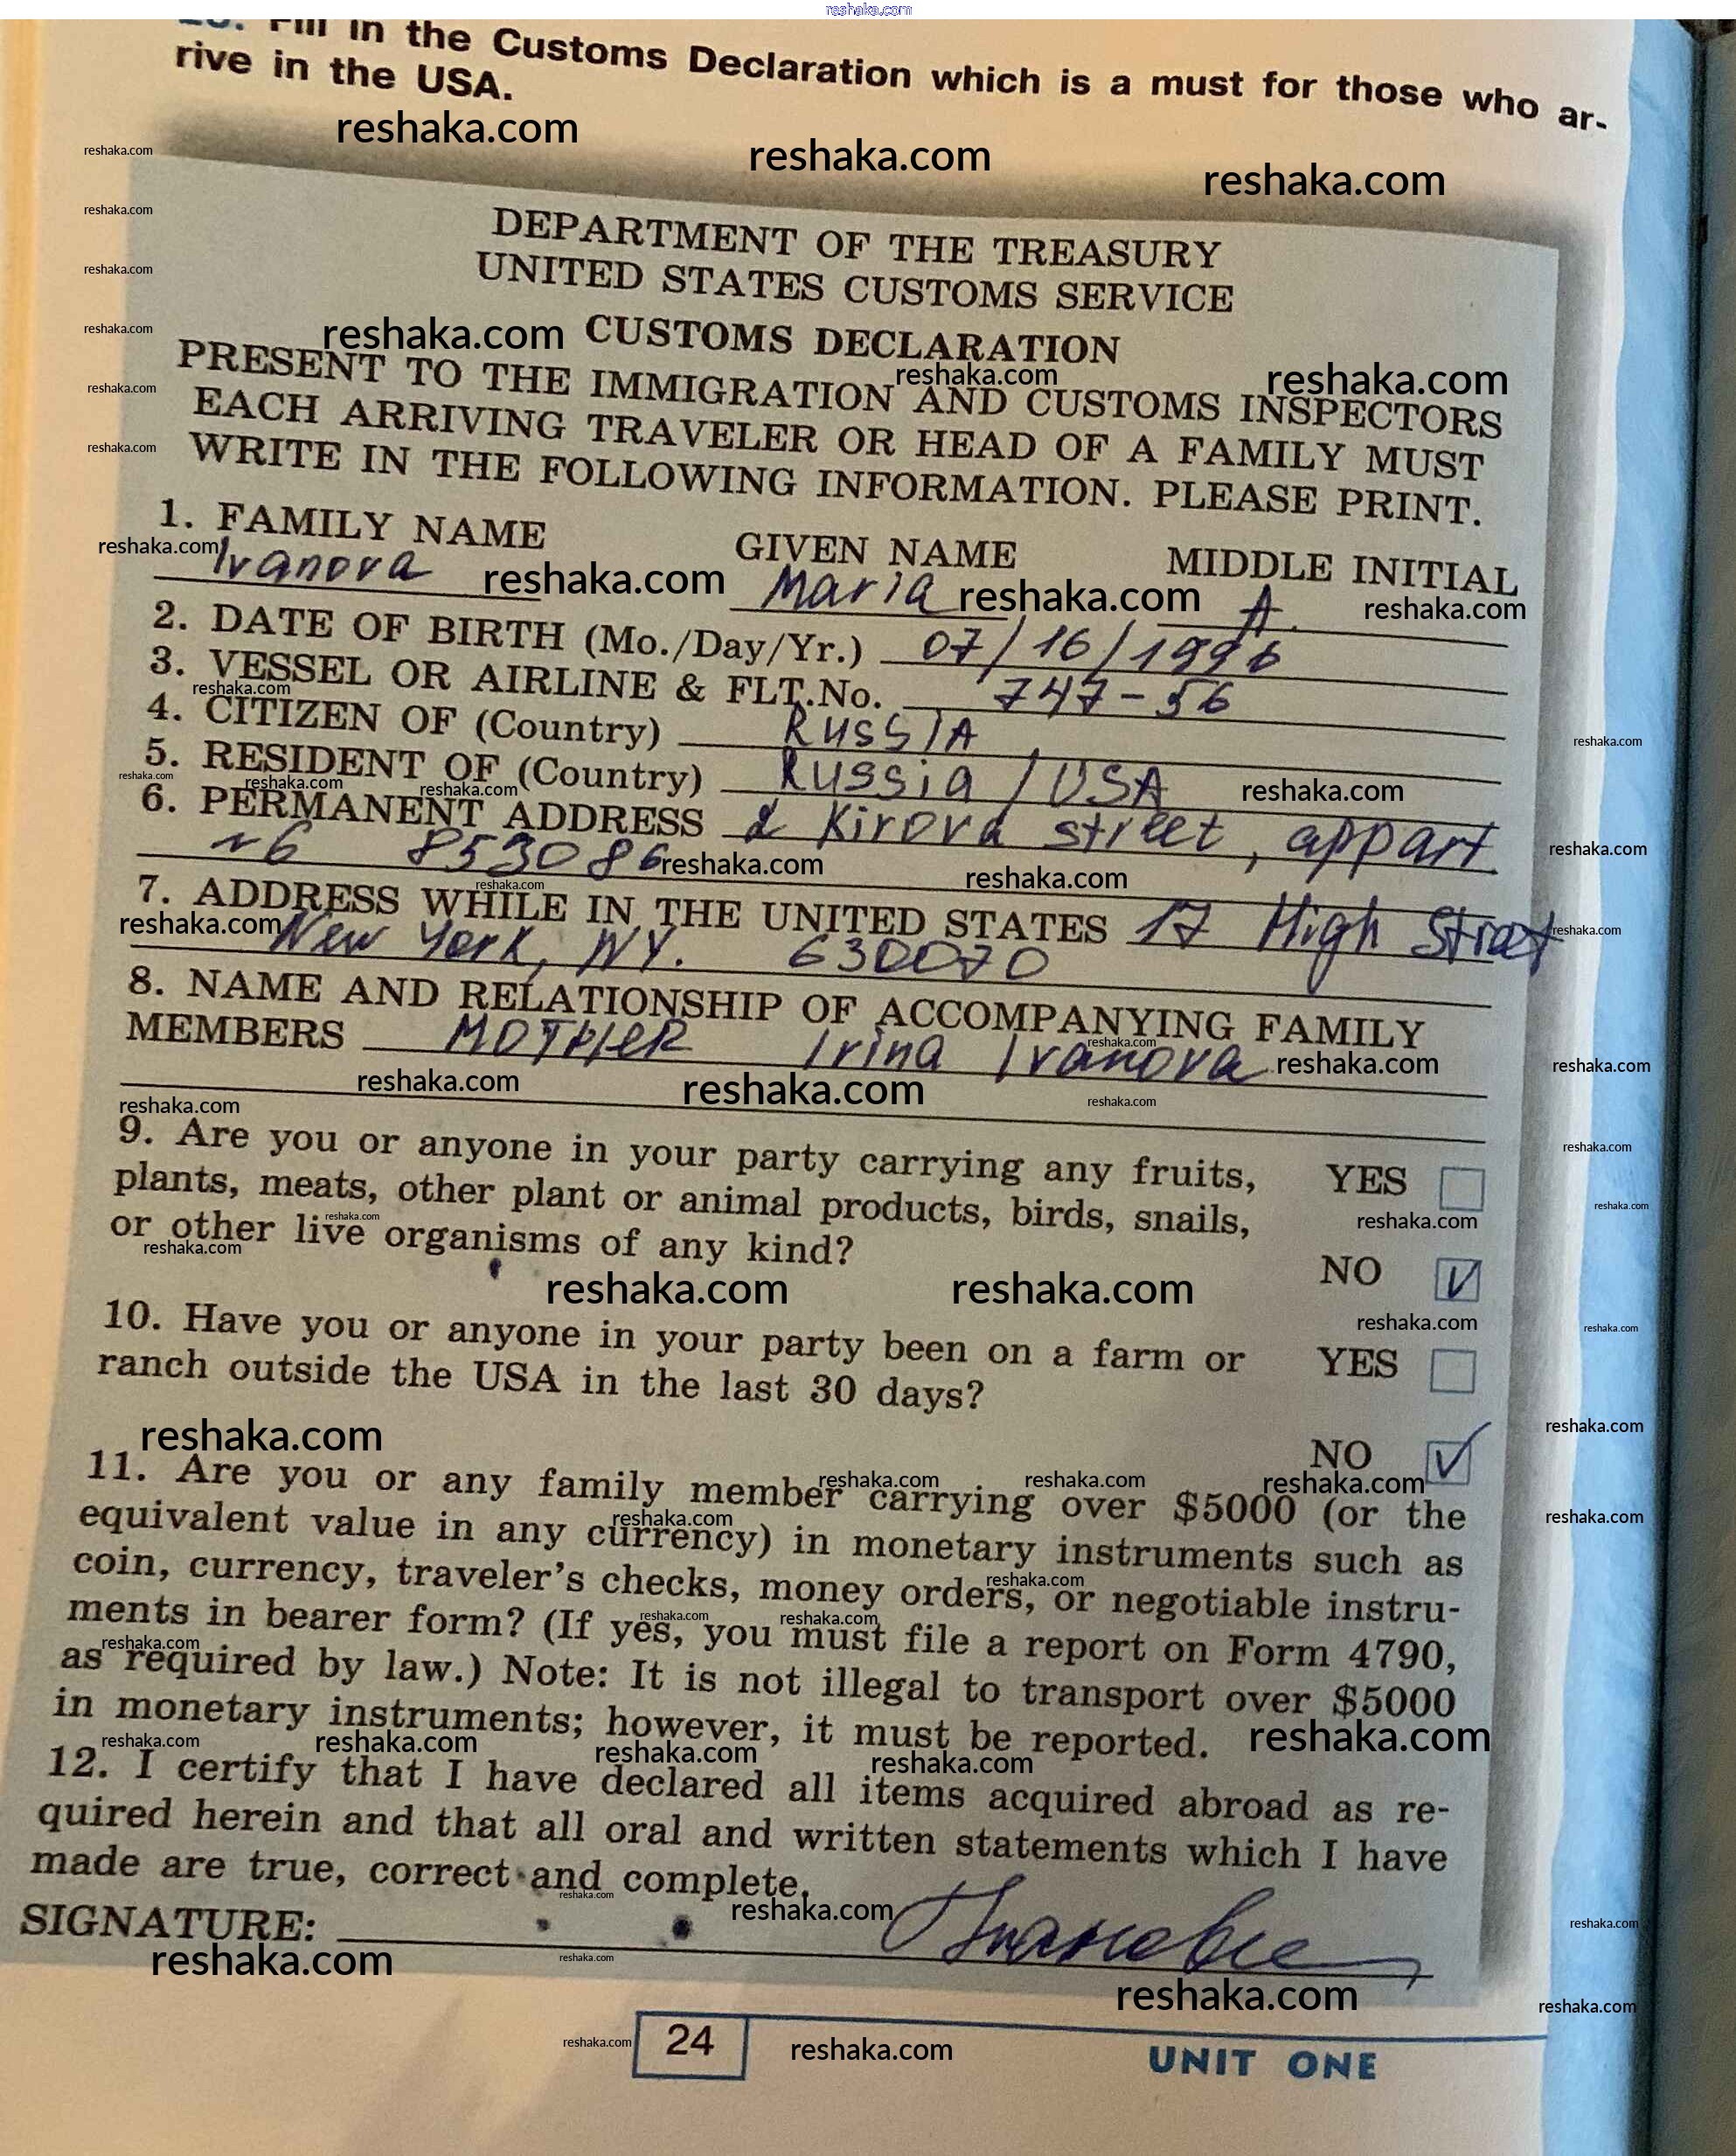 reshaka.com
Fill in the Customs Declaration which is a must for those who ar-
rive in the USA.
DEPARTMENT OF THE TREASURY
UNITED STATES CUSTOMS SERVICE
CUSTOMS DECLARATION
PRESENT TO THE IMMIGRATION AND CUSTOMS INSPECTORS
EACH ARRIVING TRAVELER OR HEAD OF A FAMILY MUST
WRITE IN THE FOLLOWING INFORMATION. PLEASE PRINT.
1. FAMILY NAME GIVEN NAME MIDDLE INITIAL
Ivanova Maria A.
2. DATE OF BIRTH (Mo./Day/Yr.) 07/16/1996
3. VESSEL OR AIRLINE & FLT.No. 747-56
4. CITIZEN OF (Country) RUSSIA
5. RESIDENT OF (Country) Russia / USA
6. PERMANENT ADDRESS Kirova street, appart.
6 853086
7. ADDRESS WHILE IN THE UNITED STATES 17 High Street
New York, NY. 630070
8. NAME AND RELATIONSHIP OF ACCOMPANYING FAMILY
MEMBERS MOTHER Irina Ivanova
9. Are you or anyone in your party carrying any fruits, YES
plants, meats, other plant or animal products, birds, snails,
or other live organisms of any kind?
NO V
10. Have you or anyone in your party been on a farm or YES
ranch outside the USA in the last 30 days?
NO V
11. Are you or any family member carrying over $5000 (or the
equivalent value in any currency) in monetary instruments such as
coin, currency, traveler's checks, money orders, or negotiable instru-
ments in bearer form? (If yes, you must file a report on Form 4790,
as required by law.) Note: It is not illegal to transport over $5000
in monetary instruments; however, it must be reported.
12. I certify that I have declared all items acquired abroad as re-
quired herein and that all oral and written statements which I have
made are true, correct and complete.
SIGNATURE:
24
UNIT ONE